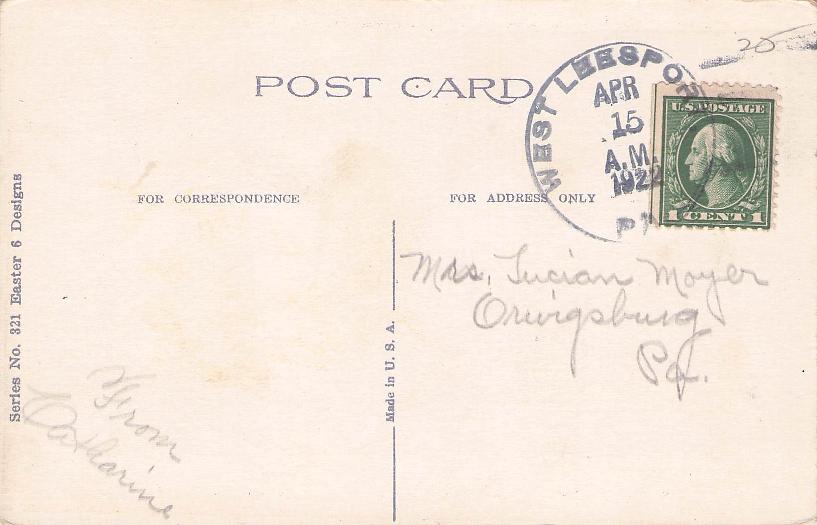 25
POST CARD
WEST LEESPOR
APR
15
A.M.
1922
PA
U.S. POSTAGE
1 CENT 1
FOR CORRESPONDENCE
FOR ADDRESS ONLY
Mrs. Lucian Moyer
Orwigsburg
Pa.
From
Katharine
Series No. 321 Easter 6 Designs
Made in U. S. A.